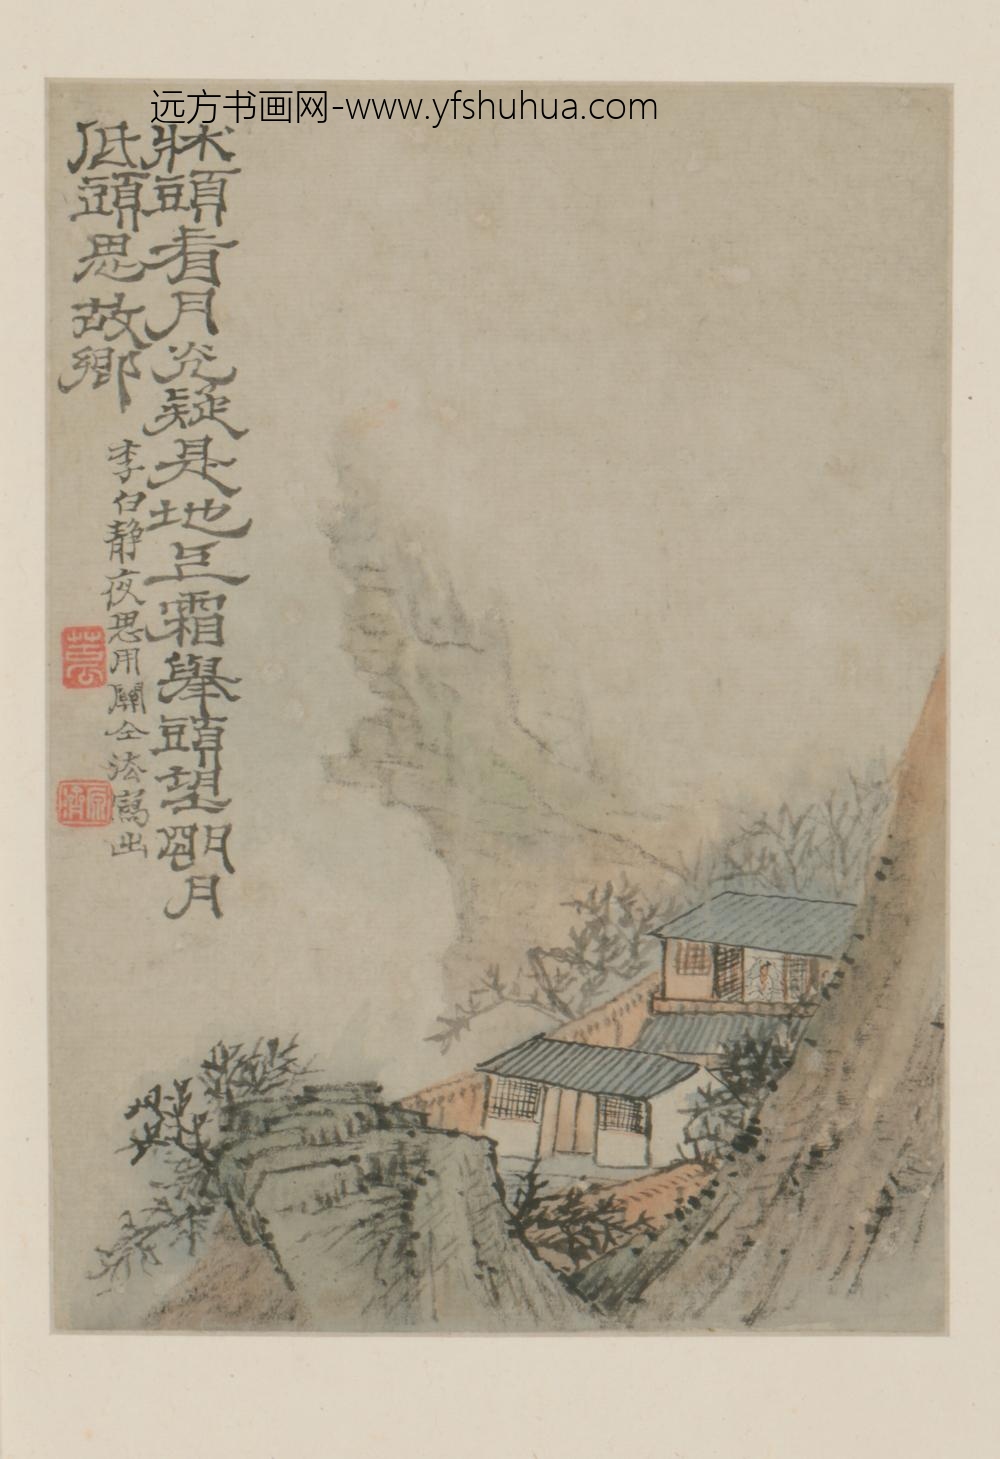 远方书画网-www.yfshuhua.com
牀頭看月光疑是地上霜舉頭望朙月
低頭思故鄉
李白靜夜思用關仝法寫出